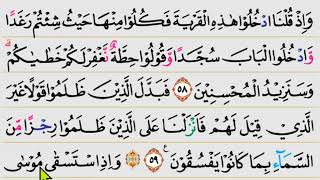 وَاِذْ قُلْنَا ادْخُلُوْا هٰذِهِ الْقَرْيَةَ فَكُلُوْا مِنْهَا حَيْثُ شِئْتُمْ رَغَدًا
وَّادْخُلُوا الْبَابَ سُجَّدًا وَّقُوْلُوْا حِطَّةٌ نَّغْفِرْلَكُمْ خَطٰيٰكُمْ ۗ
وَسَنَزِيْدُ الْمُحْسِنِيْنَ ٥٨ فَبَدَّلَ الَّذِيْنَ ظَلَمُوْا قَوْلًا غَيْرَ
الَّذِيْ قِيْلَ لَهُمْ فَاَنْزَلْنَا عَلَى الَّذِيْنَ ظَلَمُوْا رِجْزًا مِّنَ
السَّمَاۤءِ بِمَا كَانُوْا يَفْسُقُوْنَ ٥٩ ۞ وَاِذِ اسْتَسْقٰى مُوْسٰى